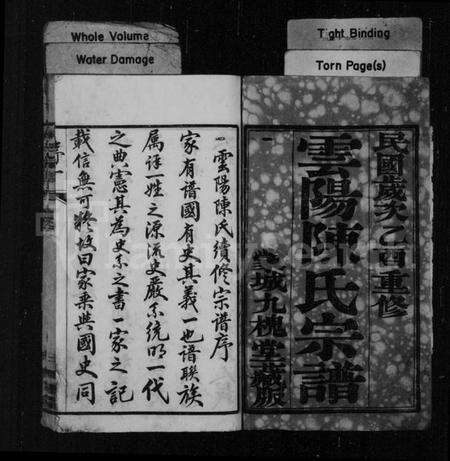 Whole Volume
Water Damage
Tight Binding
Torn Page(s)
民國歲次乙酉重修
雲陽陳氏宗譜
城九槐堂藏版
雲陽陳氏續修宗譜序
家有譜國有史其義一也譜聯族
属詳一姓之源流史嚴系統明一代
之典憲其為史系之書一家之記
載信無可疑故曰家乘與國史同